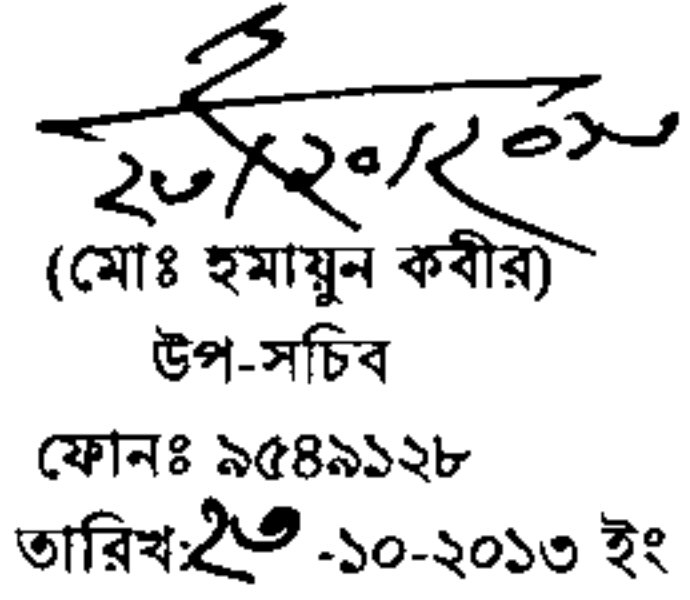 ২৩/১০/২০১৩
(মোঃ হুমায়ুন কবীর)
উপ-সচিব
ফোনঃ ৯৫৪৯১২৮
তারিখ:২৩ -১০-২০১৩ ইং